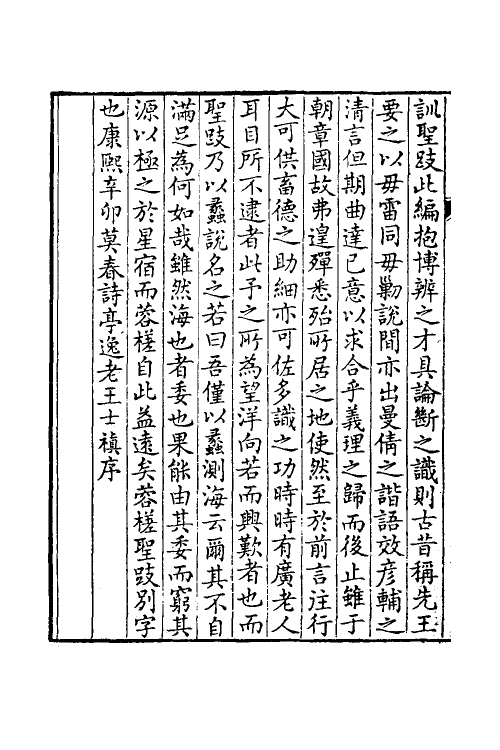 訓聖跂此編抱博辨之才具論斷之識則古昔稱先王
要之以毋雷同毋勦說間亦出曼倩之諧語效彦輔之
淸言但期曲達已意以求合乎義理之歸而後止雖于
朝章國故弗遑殫悉殆所居之地使然至於前言往行
大可供畜德之助細亦可佐多識之功時時有廣老人
耳目所不逮者此予之所為望洋向若而興歎者也而
聖跂乃以蠡說名之若曰吾僅以蠡測海云爾其不自
滿足為何如哉雖然海也者委也果能由其委而窮其
源以極之於星宿而蓉槎自此益遠矣蓉槎聖跂別字
也康熙辛卯莫春詩亭逸老王士禛序